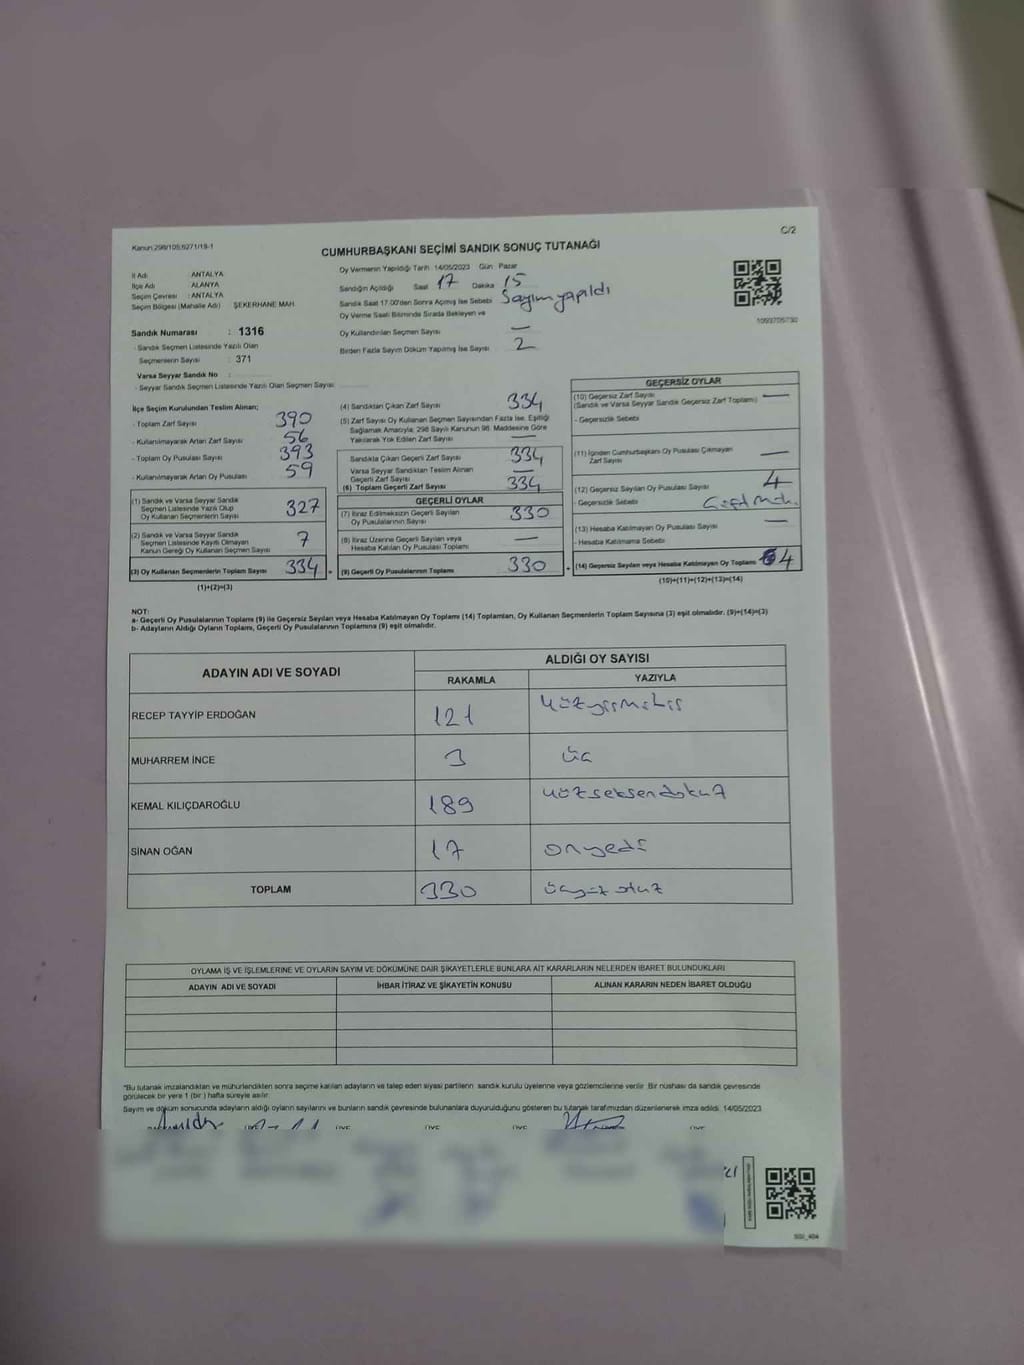 Kanun:298/105,6271/19-1
C/2
CUMHURBAŞKANI SEÇİMİ SANDIK SONUÇ TUTANAĞI
İl Adı : ANTALYA
İlçe Adı : ALANYA
Seçim Çevresi : ANTALYA
Seçim Bölgesi (Mahalle Adı) : ŞEKERHANE MAH.
Sandık Numarası : 1316
- Sandık Seçmen Listesinde Yazılı Olan
Seçmenlerin Sayısı : 371
Varsa Seyyar Sandık No :
- Seyyar Sandık Seçmen Listesinde Yazılı Olan Seçmen Sayısı
Oy Vermenin Yapıldığı Tarih 14/05/2023 Gün Pazar
Sandığın Açıldığı Saat 17 Dakika 15
Sandık Saat 17.00'den Sonra Açılmış İse Sebebi Sayım yapıldı
Oy Verme Saati Bitiminde Sırada Bekleyen ve
Oy Kullandırılan Seçmen Sayısı —
Birden Fazla Sayım Döküm Yapılmış İse Sayısı 2
1093705730
İlçe Seçim Kurulundan Teslim Alınan;
- Toplam Zarf Sayısı 390
- Kullanılmayarak Artan Zarf Sayısı 56
- Toplam Oy Pusulası Sayısı 393
- Kullanılmayarak Artan Oy Pusulası 59
(1) Sandık ve Varsa Seyyar Sandık
Seçmen Listesinde Yazılı Olup
Oy Kullanan Seçmenlerin Sayısı 327
(2) Sandık ve Varsa Seyyar Sandık
Seçmen Listesinde Kayıtlı Olmayan
Kanun Gereği Oy Kullanan Seçmen Sayısı 7
(3) Oy Kullanan Seçmenlerin Toplam Sayısı 334
(1)+(2)=(3)
(4) Sandıktan Çıkan Zarf Sayısı 334
(5) Zarf Sayısı Oy Kullanan Seçmen Sayısından Fazla İse, Eşitliği
Sağlamak Amacıyla, 298 Sayılı Kanunun 98. Maddesine Göre
Yakılarak Yok Edilen Zarf Sayısı —
Sandıkta Çıkan Geçerli Zarf Sayısı 334
Varsa Seyyar Sandıktan Teslim Alınan
Geçerli Zarf Sayısı —
(6) Toplam Geçerli Zarf Sayısı 334
GEÇERLİ OYLAR
(7) İtiraz Edilmeksizin Geçerli Sayılan
Oy Pusulalarının Sayısı 330
(8) İtiraz Üzerine Geçerli Sayılan veya
Hesaba Katılan Oy Pusulası Toplamı —
(9) Geçerli Oy Pusulalarının Toplamı 330
GEÇERSİZ OYLAR
(10) Geçersiz Zarf Sayısı
(Sandık ve Varsa Seyyar Sandık Geçersiz Zarf Toplamı) —
- Geçersizlik Sebebi
(11) İçinden Cumhurbaşkanı Oy Pusulası Çıkmayan
Zarf Sayısı —
(12) Geçersiz Sayılan Oy Pusulası Sayısı 4
- Geçersizlik Sebebi
(13) Hesaba Katılmayan Oy Pusulası Sayısı —
- Hesaba Katılmama Sebebi
(14) Geçersiz Sayılan veya Hesaba Katılmayan Oy Toplamı 4
(10)+(11)+(12)+(13)=(14)
NOT:
a- Geçerli Oy Pusulalarının Toplamı (9) ile Geçersiz Sayılan veya Hesaba Katılmayan Oy Toplamı (14) Toplamları, Oy Kullanan Seçmenlerin Toplam Sayısına (3) eşit olmalıdır. (9)+(14)=(3)
b- Adayların Aldığı Oyların Toplamı, Geçerli Oy Pusulalarının Toplamına (9) eşit olmalıdır.
ADAYIN ADI VE SOYADI ALDIĞI OY SAYISI
RAKAMLA YAZIYLA
RECEP TAYYİP ERDOĞAN 121 yüzyirmibir
MUHARREM İNCE 3 üç
KEMAL KILIÇDAROĞLU 189 yüzseksendokuz
SİNAN OĞAN 17 onyedi
TOPLAM 330 üçyüz otuz
OYLAMA İŞ VE İŞLEMLERİNE VE OYLARIN SAYIM VE DÖKÜMÜNE DAİR ŞİKAYETLERLE BUNLARA AİT KARARLARIN NELERDEN İBARET BULUNDUKLARI
ADAYIN ADI VE SOYADI İHBAR İTİRAZ VE ŞİKAYETİN KONUSU ALINAN KARARIN NEDEN İBARET OLDUĞU
*Bu tutanak imzalandıktan ve mühürlendikten sonra seçime katılan adayların ve talep eden siyasi partilerin sandık kurulu üyelerine veya gözlemcilerine verilir. Bir nüshası da sandık çevresinde
görülecek bir yere 1 (bir) hafta süreyle asılır.
Sayım ve döküm sonucunda adayların aldığı oyların sayılarını ve bunların sandık çevresinde bulunanlara duyurulduğunu gösteren bu tutanak tarafımızdan düzenlenerek imza edildi. 14/05/2023
ÜYE ÜYE ÜYE ÜYE